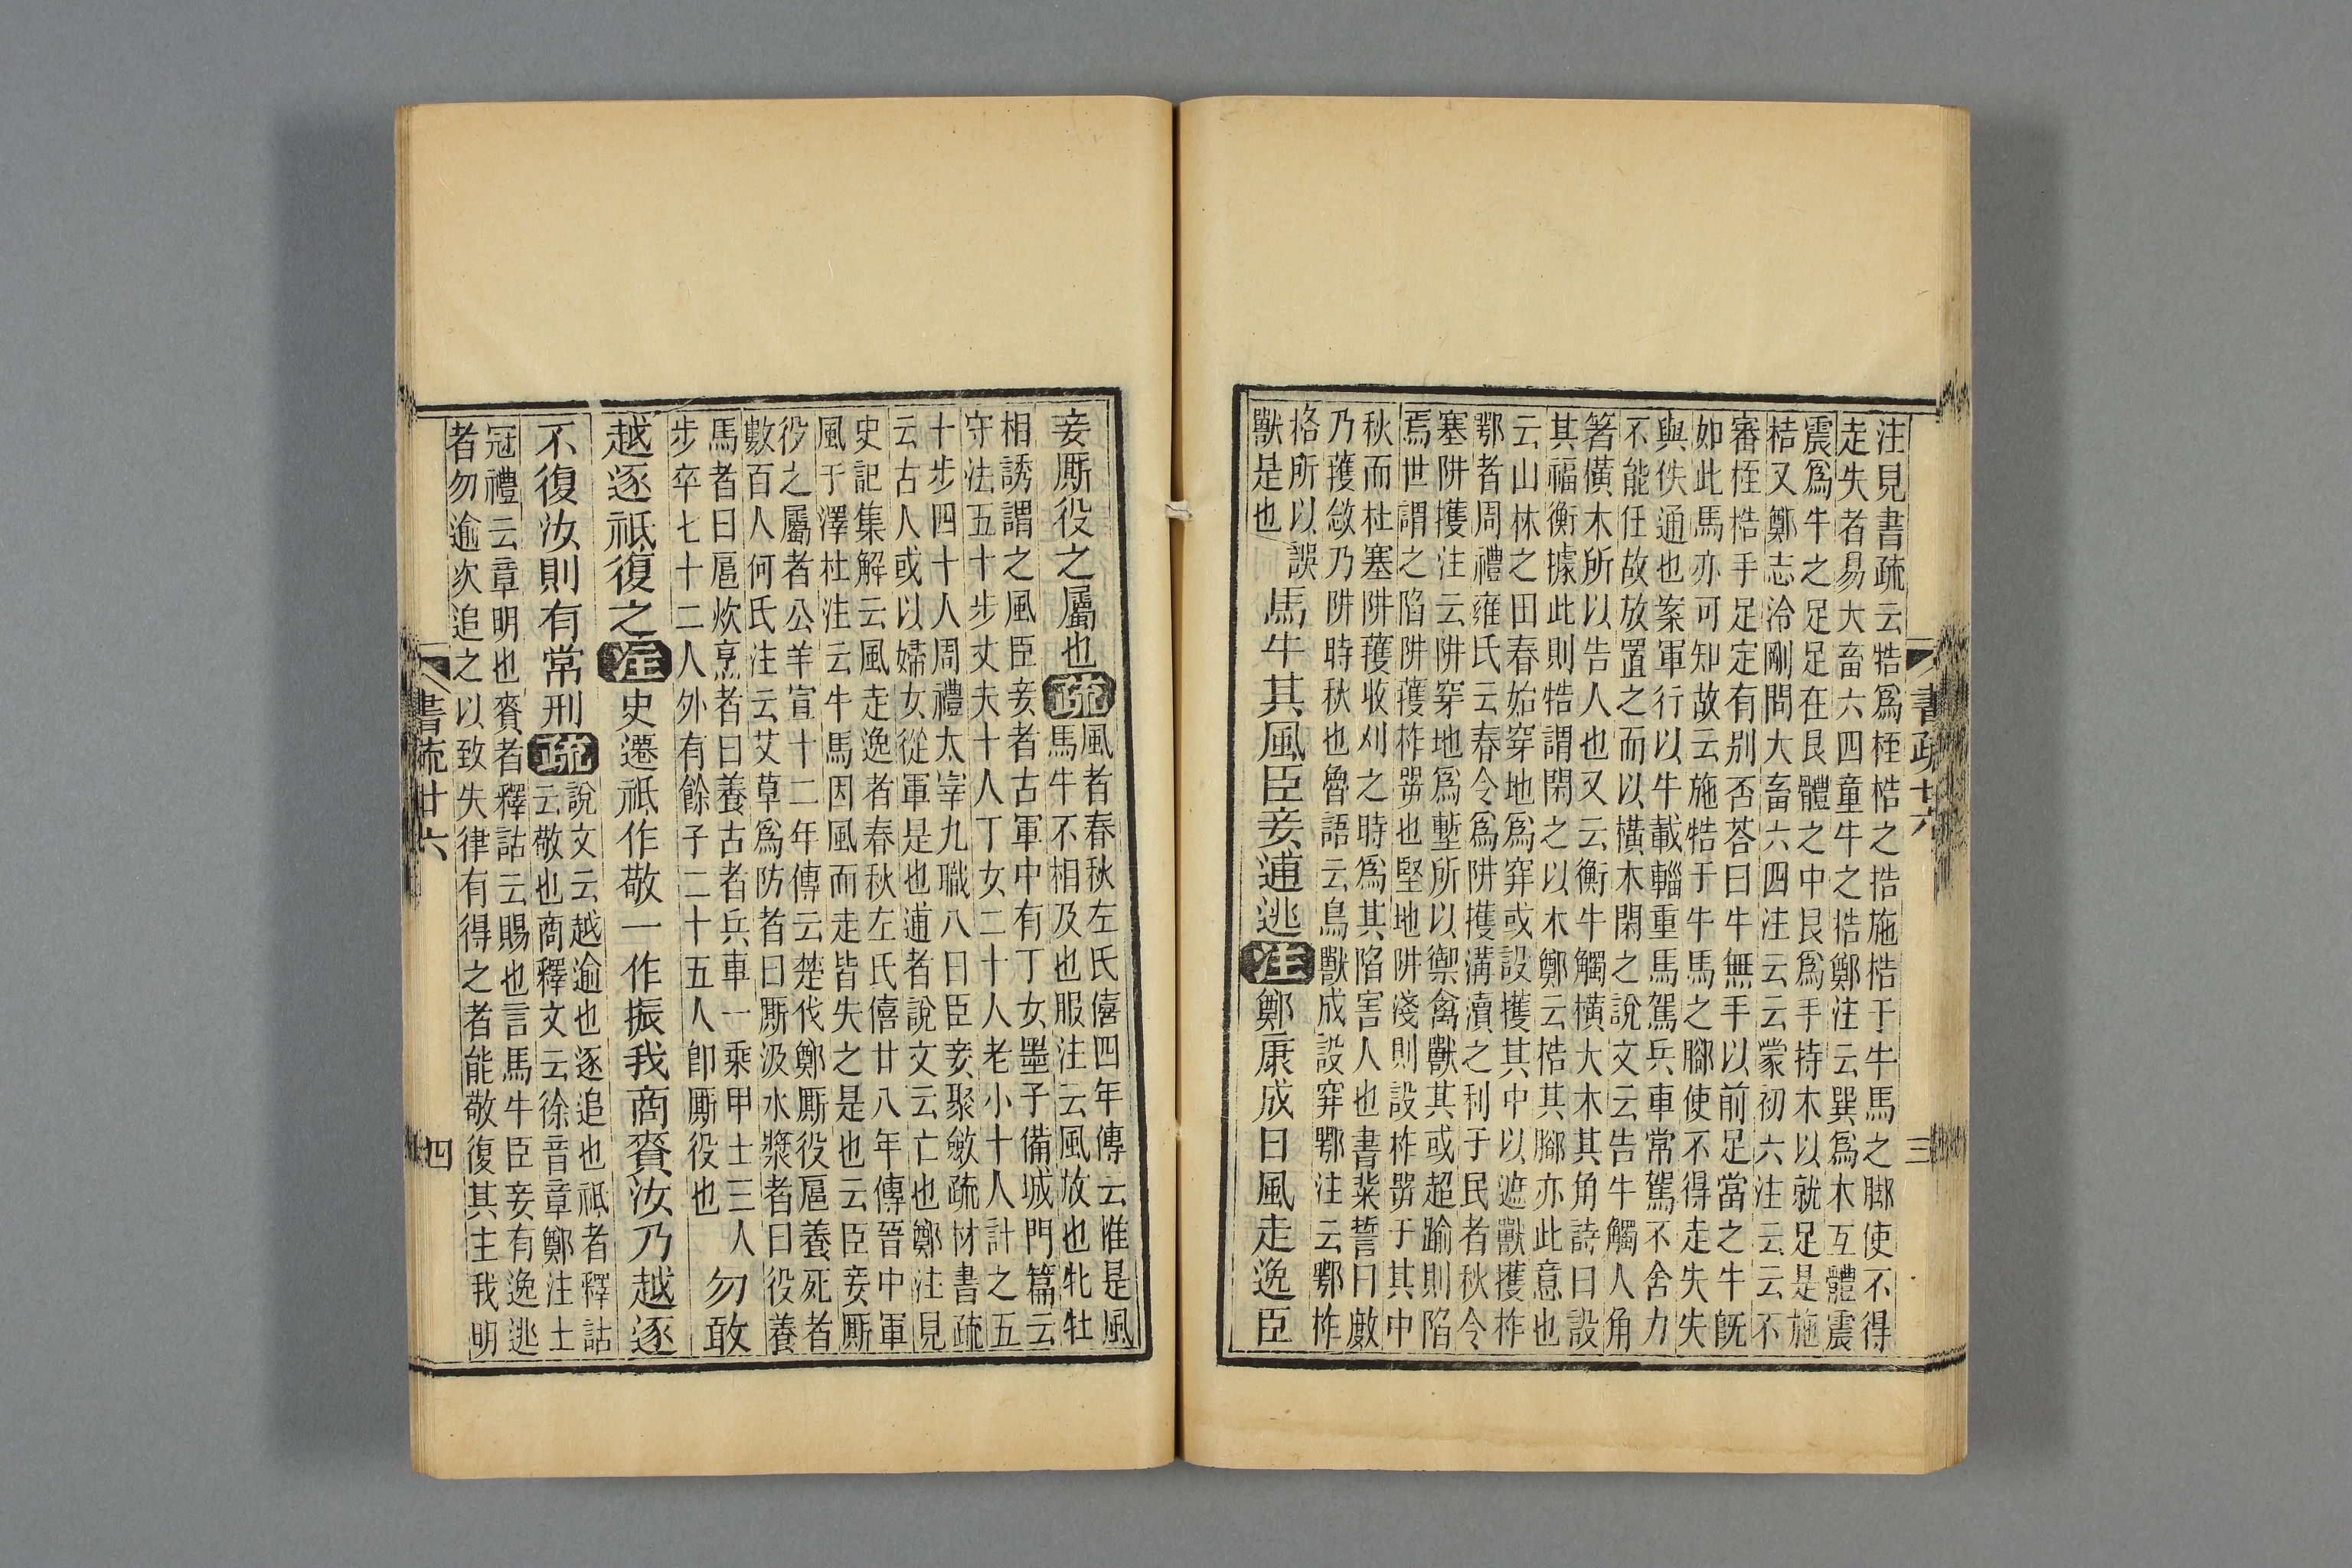 注見書疏云牿爲桎梏之梏施梏于牛馬之脚使不得
走失者易大畜六四童牛之梏鄭注云巽爲木互體震
震爲牛之足足在艮體之中艮爲手持木以就足是施
梏又鄭志泠剛問大畜六四注云云蒙初六注云云不
審桎梏手足定有别否荅曰牛無手以前足當之牛旣
如此馬亦可知故云施牿于牛馬之腳使不得走失失
與佚通也案軍行以牛載輜重馬駕兵車常駕不舍力
不能任故放置之而以橫木閑之說文云告牛觸人角
箸橫木所以告人也又云衡牛觸橫大木其角詩曰設
其福衡據此則牿謂閑之以木鄭云梏其腳亦此意也
云山林之田春始穿地爲穽或設擭其中以遮獸擭柞
鄂者周禮雍氏云春令爲阱擭溝瀆之利于民者秋令
塞阱擭注云阱穿地爲塹所以禦禽獸其或超踰則陷
焉世謂之陷阱擭柞㗊也堅地阱淺則設柞㗊于其中
秋而杜塞阱擭收刈之時爲其陷害人也書粊誓曰敿
乃擭敜乃阱時秋也魯語云鳥獸成設穽鄂注云鄂柞
格所以誤
獸是也
馬牛其風臣妾逋逃注鄭康成曰風走逸臣
書疏廿六
三
妾厮役之屬也疏
風者春秋左氏僖四年傳云惟是風
馬牛不相及也服注云風放也牝牡
相誘謂之風臣妾者古軍中有丁女墨子備城門篇云
守法五十步丈夫十人丁女二十人老小十人計之五
十步四十人周禮太宰九職八曰臣妾聚斂疏材書疏
云古人或以婦女從軍是也逋者說文云亡也鄭注見
史記集解云風走逸者春秋左氏僖廿八年傳晉中軍
風于澤杜注云牛馬因風而走皆失之是也云臣妾厮
役之屬者公羊宣十二年傳云楚伐鄭厮役扈養死者
數百人何氏注云艾草爲防者曰厮汲水漿者曰役養
馬者曰扈炊烹者曰養古者兵車一乘甲士三人
步卒七十二人外有餘子二十五人卽厮役也
勿敢
越逐祗復之注史遷祗作敬一作振我商賚汝乃越逐
不復汝則有常刑疏
說文云越逾也逐追也祗者釋詁
云敬也商釋文云徐音章鄭注士
冠禮云章明也賚者釋詁云賜也言馬牛臣妾有逸逃
者勿逾次追之以致失律有得之者能敬復其主我明
書疏廿六
四